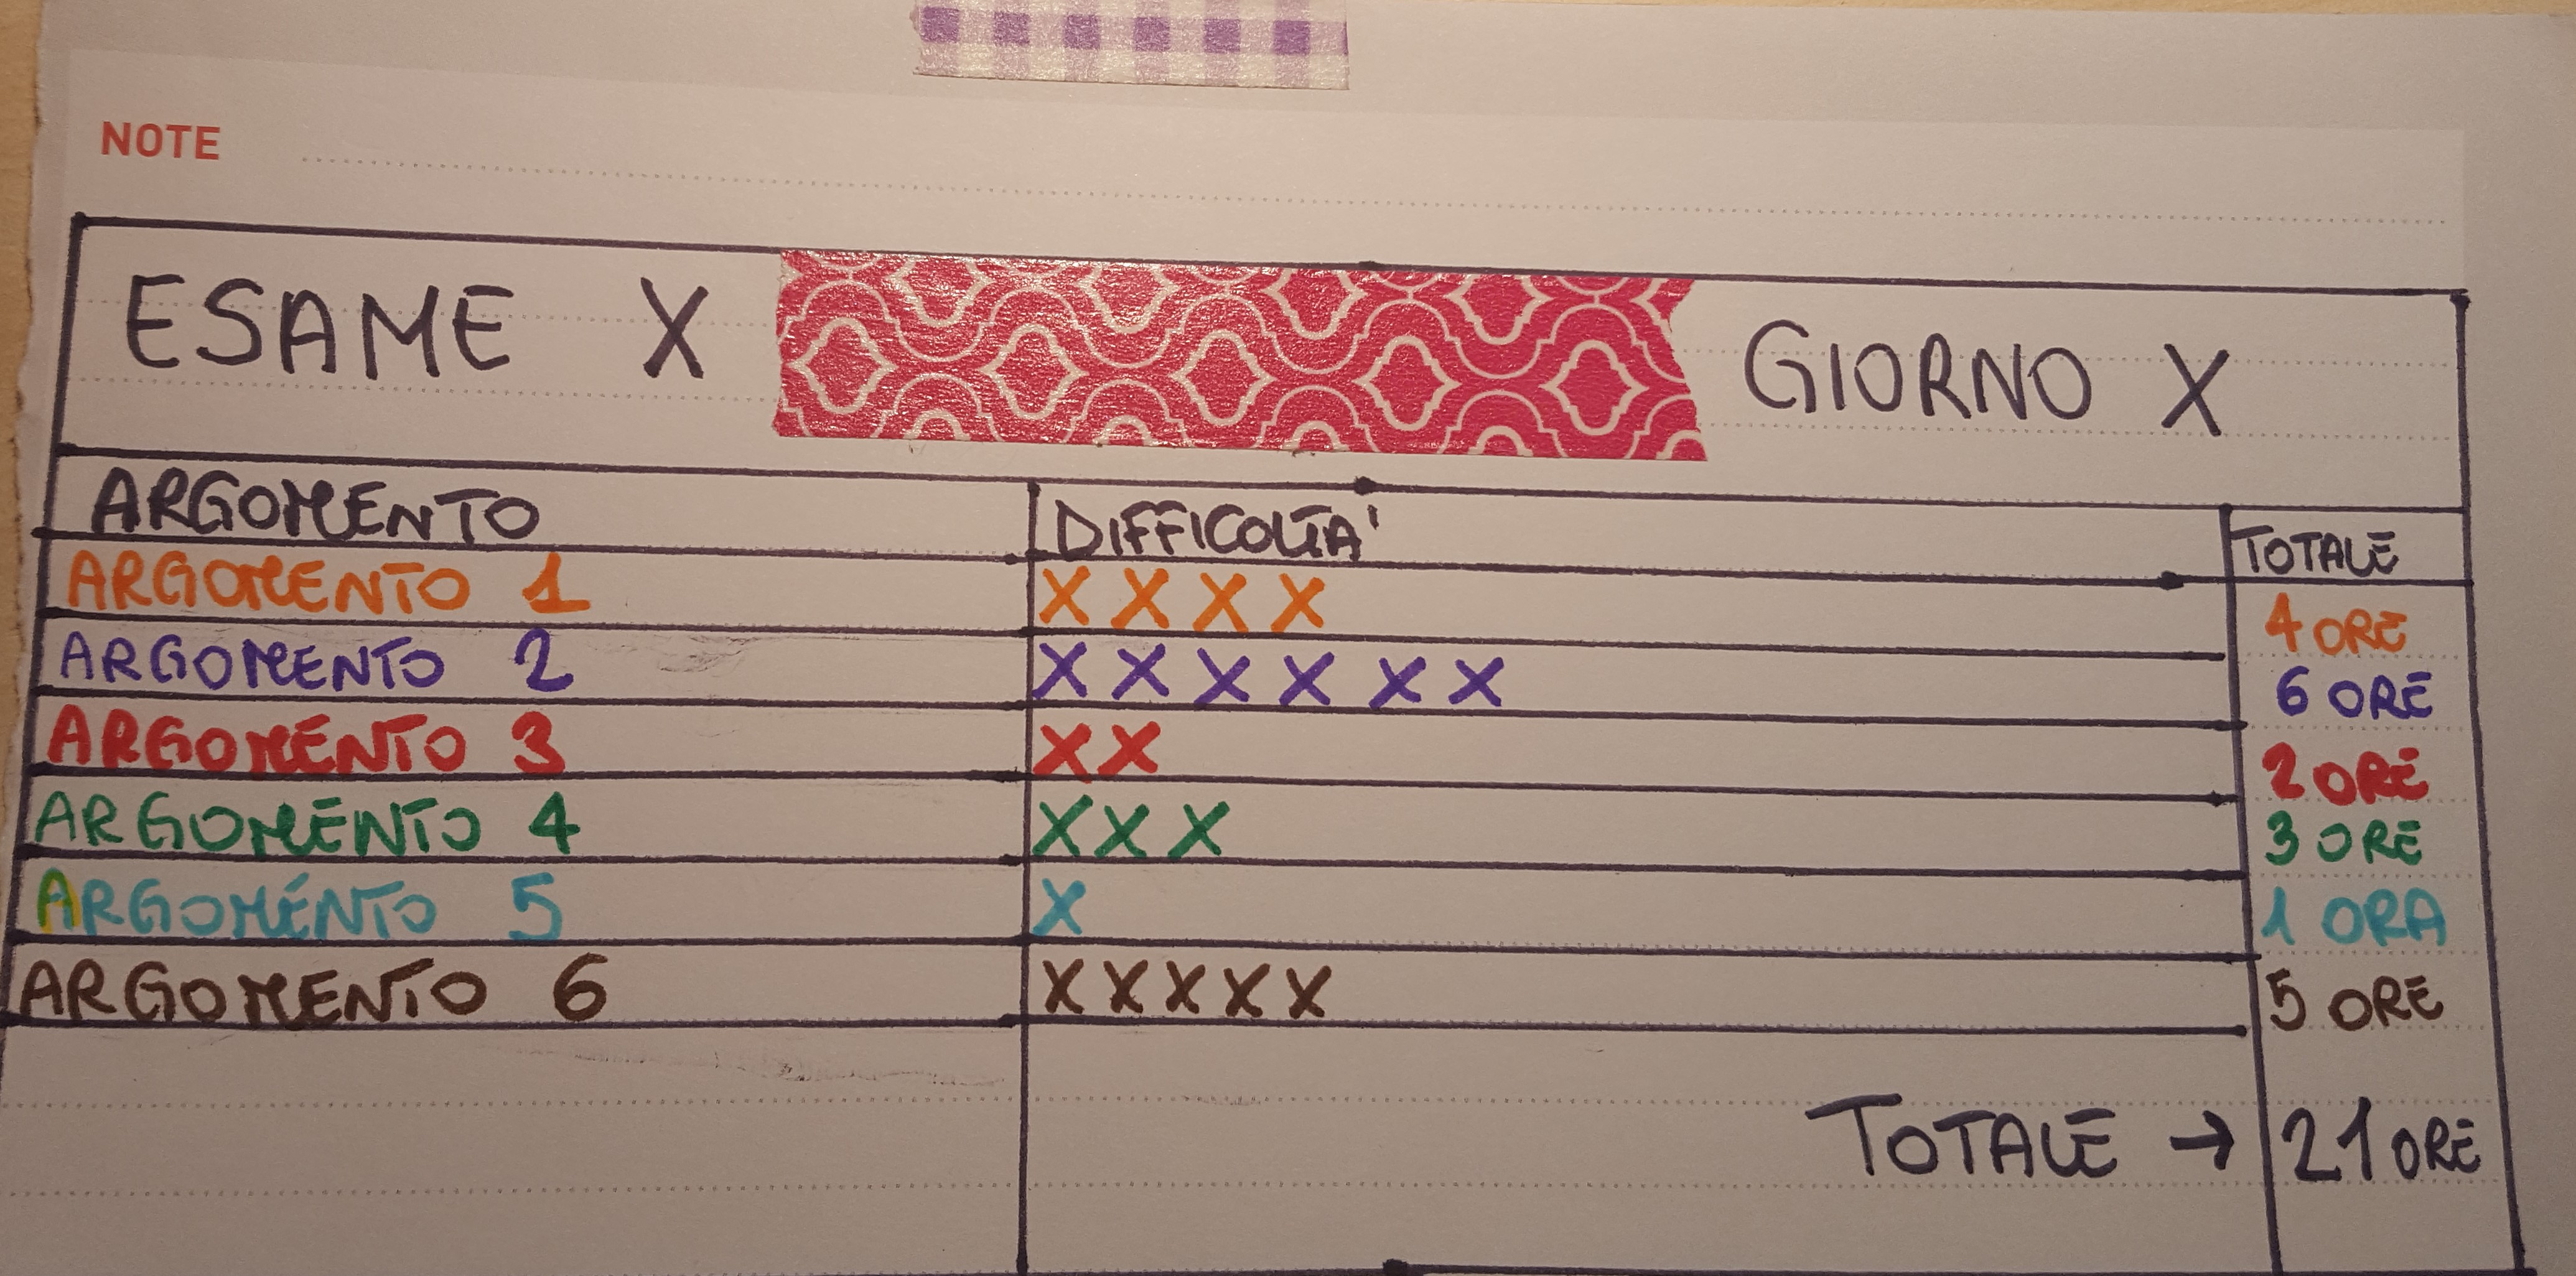 NOTE
ESAME X GIORNO X
ARGOMENTO DIFFICOLTA' TOTALE
ARGOMENTO 1 X X X X 4 ORE
ARGOMENTO 2 X X X X X X 6 ORE
ARGOMENTO 3 X X 2 ORE
ARGOMENTO 4 X X X 3 ORE
ARGOMENTO 5 X 1 ORA
ARGOMENTO 6 X X X X X 5 ORE
TOTALE → 21 ORE